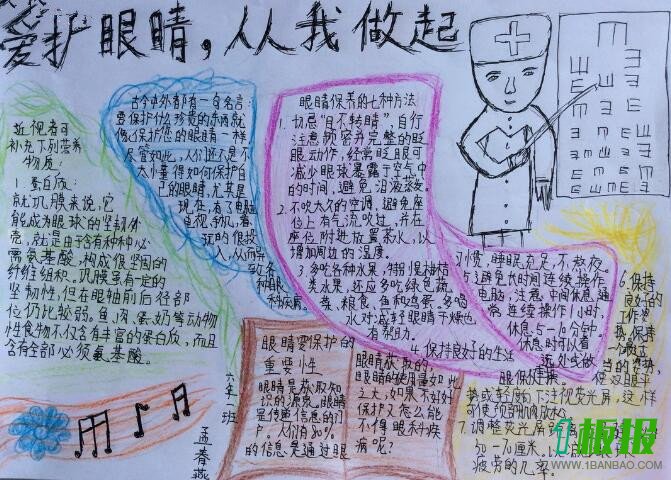 爱护眼睛，从我做起
古今中外都有一句名言：
要保护什么珍贵的东西就
像保护您的眼睛一样
尽管如此，人们还是不
太懂得如何保护自
己的眼睛，尤其是
现在，有了电脑
电视，手机，看
玩的很投
入，从而导
致各
种眼
科疾病。
近视者可
补充下列营养
物质。
1. 蛋白质：
就巩膜来说，它
能成为眼球的坚韧外
壳，就是由于含有种种必
需氨基酸，构成很坚固的
纤维组织。巩膜虽有一定的
坚韧性，但在眼轴前后径部
位仍比较弱。鱼、肉、蛋、奶等动物
性食物不仅含有丰富的蛋白质，而且
含有全部必须氨基酸。
眼睛保养的七种方法
1. 切忌“目不转睛”，自行
注意频密并完整的眨
眼动作，经常眨眼可
减少眼球暴露于空气中
的时间，避免泪液蒸发。
2. 不吹太久的空调，避免座
位上有气流吹过，并在
座位附近放置茶水，以
增加周边的湿度。
3. 多吃各种水果，特别是柑桔
类水果，还应多吃绿色蔬
菜、粮食、鱼和鸡蛋。多喝
水对减轻眼睛干燥也
有帮助。
4. 保持良好的生活
习惯，睡眠充足，不熬夜。
5. 避免长时间连续操作
电脑，注意中间休息，通
常连续操作1小时，
休息5—10分钟。
休息时可以看
远处或做
眼保健操。
6. 保持
良好的
工作姿
势。保持
一个最适
当的姿势，
使双眼平
视或轻度向下注视荧光屏，这样
可使颈部肌肉放松。
7. 调整荧光屏
50—70厘米
疲劳的几率。
眼睛要保护的
重要性
眼睛是获取知
识的源泉。眼睛
是传递信息的门
户。人们有80%
的信息是通过眼
睛获取的，
眼睛的使用量如此
之大，如果不好好
保护又怎么能
不得眼科疾
病呢？
六年一班
孟春燕
板报
WWW.1BANBAO.COM